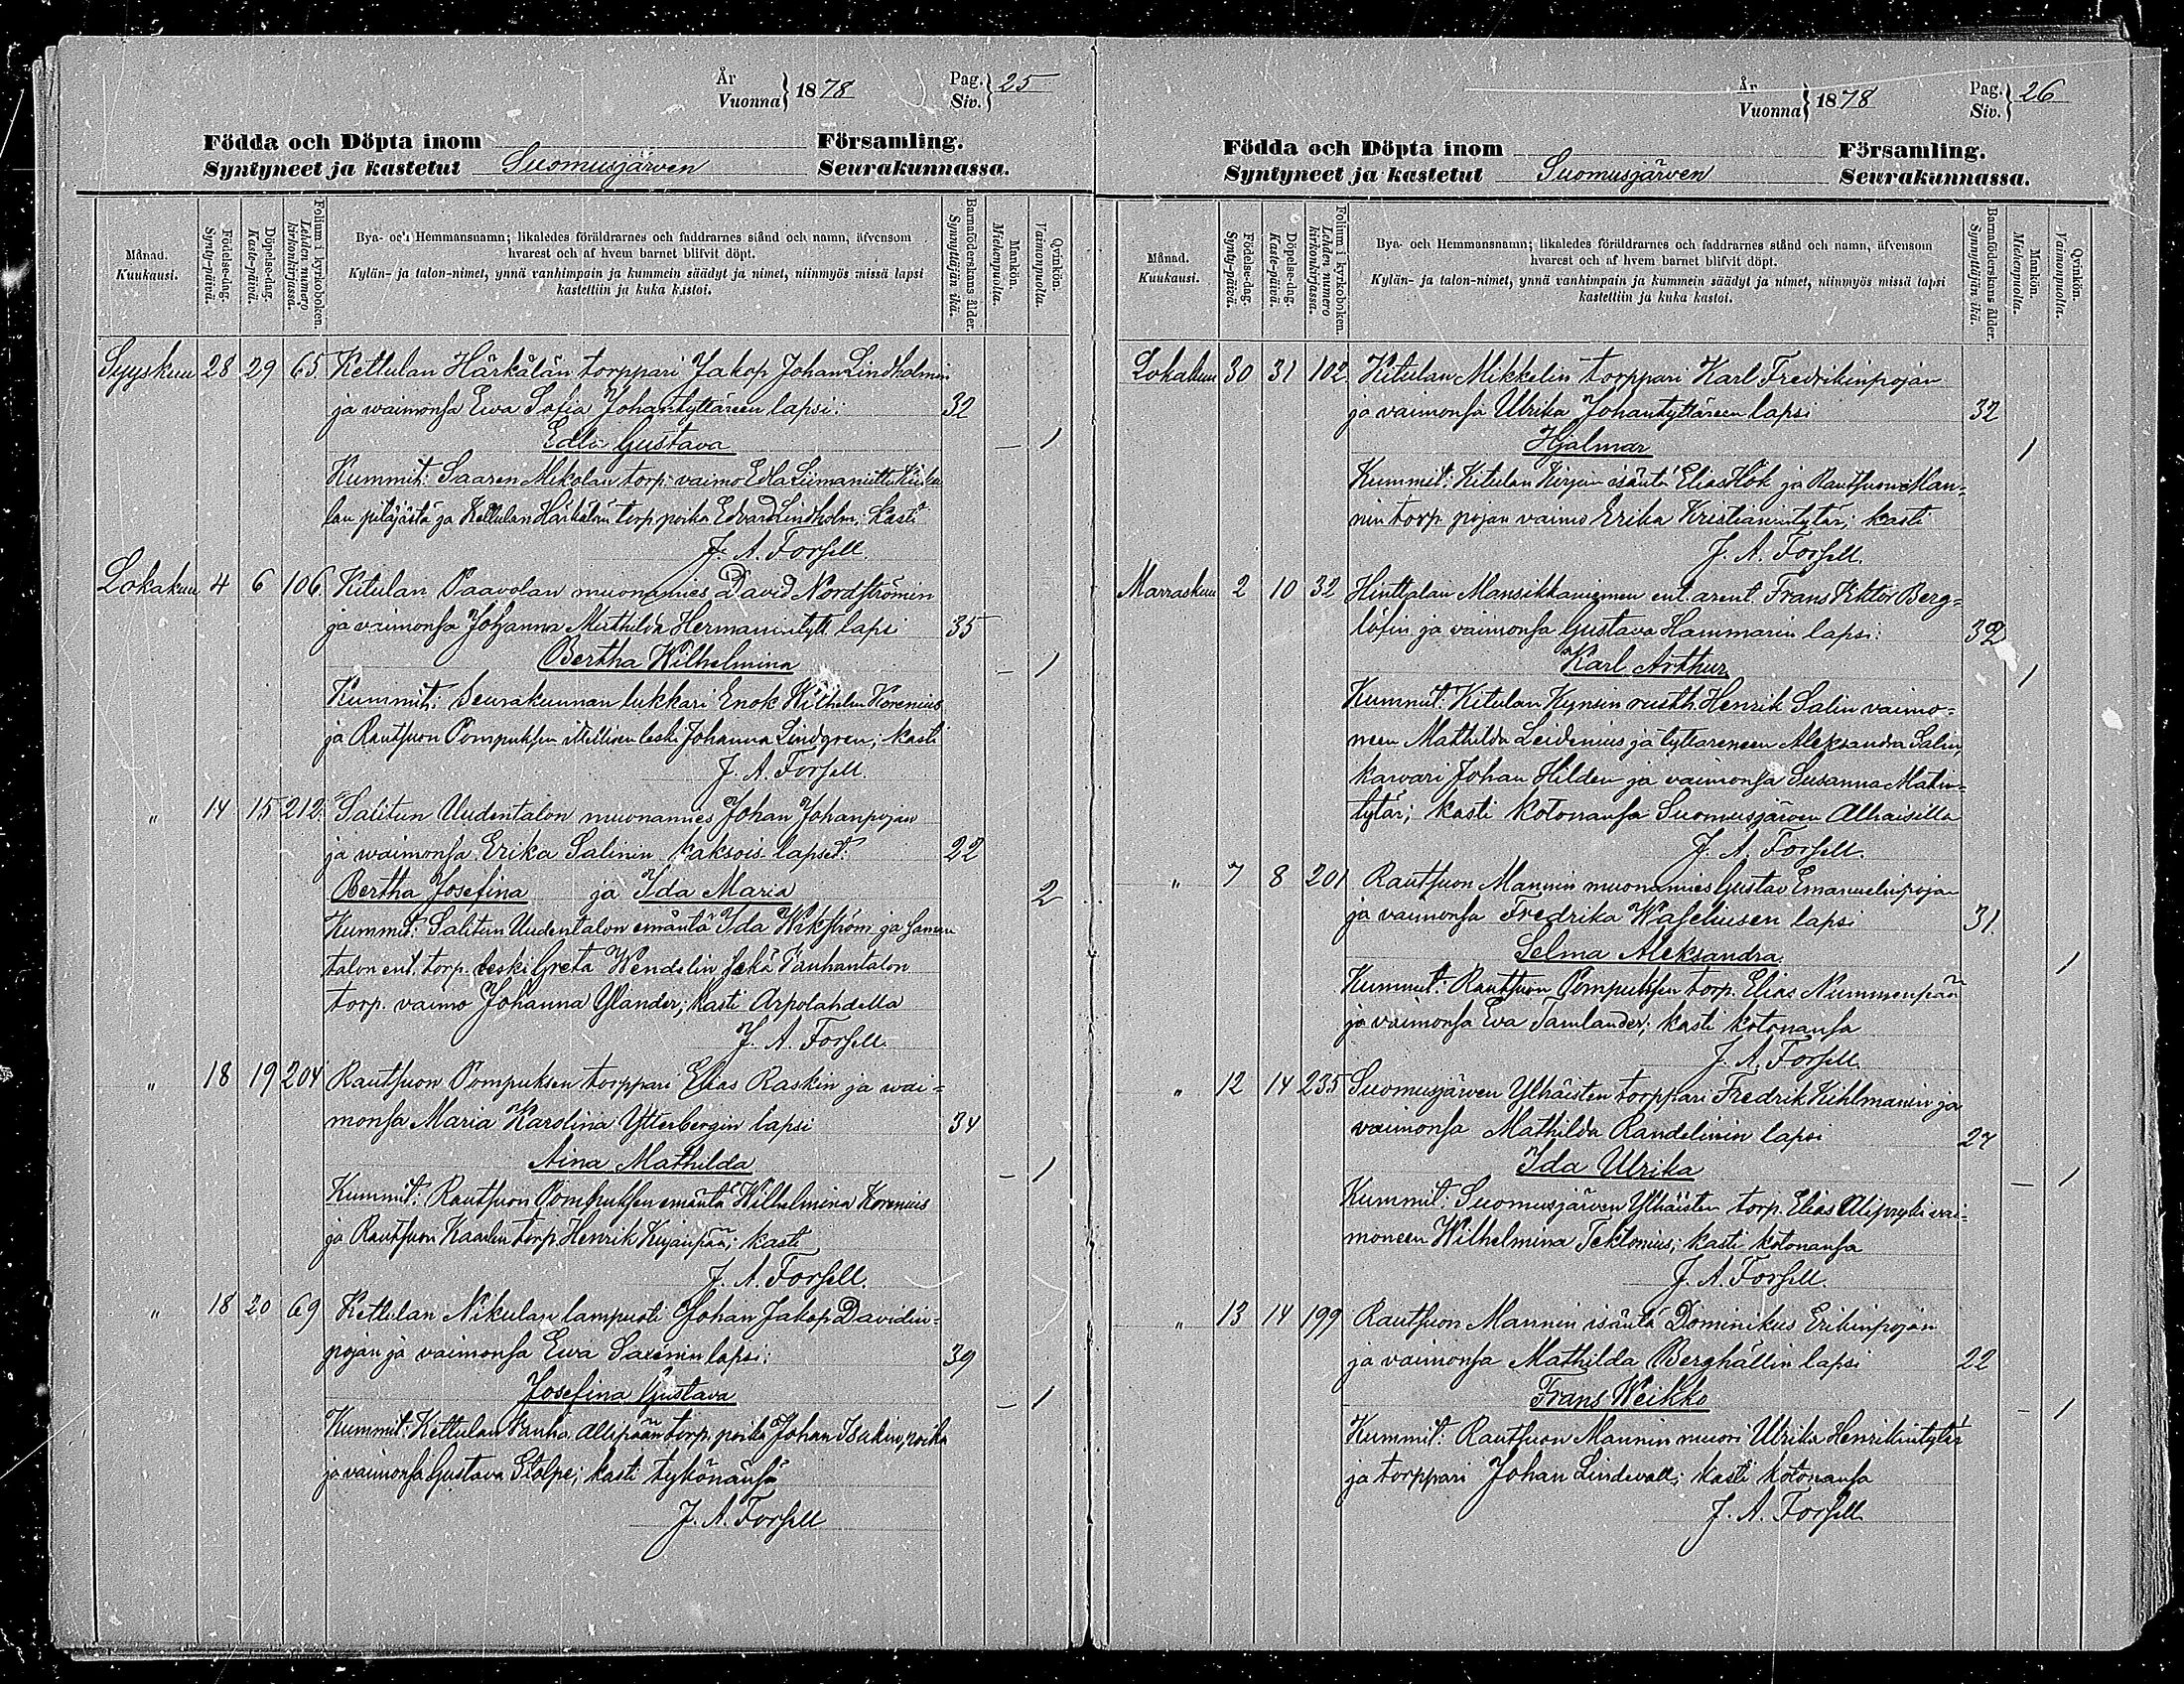 År
Vuonna} 1878
Pag.
Siv.} 25
Födda och Döpta inom Församling.
Syntyneet ja kastetut Suomusjärven Seurakunnassa.
Månad.
Kuukausi.
Födelse-dag.
Synty-päivä.
Döpelse-dag.
Kaste-päivä.
Folium i kyrkoboken.
Lehden numero kirkonkirjassa.
Bya- och Hemmansnamn; likaledes föräldrarnes och faddrarnes stånd och namn, äfvensom
hvarest och af hvem barnet blifvit döpt.
Kylän- ja talon-nimet, ynnä vanhimpain ja kummein säädyt ja nimet, niinmyös missä lapsi
kastettiin ja kuka kastoi.
Barnaföderskans ålder.
Synnyttäjän ikä.
Mankön.
Miehenpuolta.
Qvinkön.
Vaimonpuolta.
Syyskuu 28 29 65 Kettulan Härkälän torppari Jakop Johan Lindholmin
ja waimonsa Ewa Sofia Johantyttären lapsi: 32
Edla Gustava — 1
Kummit: Saaren Mikolan torp. vaimo Edla Kiska
lan pitäjästä ja Kettulan Härkälän torp. poika Edvard Lindholm; kasti
J. A. Forsell.
Lokakuu 4 6 106 Kitulan Paavolan muonamies David Nordströmin
ja vaimonsa Johanna Mathilda Hermanintytt. lapsi 35
Bertha Wilhelmina — 1
Kummit: Seurakunnan lukkari Enok Wilhelm Korenius
ja Rautsuon Pompuksen itellisen leski Johanna Lindgren; kasti
J. A. Forsell.
" 14 15 212. Salittun Uudentalon muonamies Johan Johanpojan
ja waimonsa Erika Salinin kaksois-lapset: 22
Bertha Josefina ja Ida Maria 2
Kummit: Salittun Uudentalon emäntä Ida Wikström ja saman
talon ent. torp. leski Greta Wendelin sekä Vanhantalon
torp. vaimo Johanna Ylander; kasti Arpolahdella
J. A. Forsell.
" 18 19 204 Rautsuon Pompuksen torppari Elias Raskin ja wai-
monsa Maria Karolina Ytterbergin lapsi 34
Aina Mathilda — 1
Kummit: Rautsuon Pompuksen emäntä Wilhelmina Korenius
ja Rautsuon Kaarlen torp. Henrik Kujanpää; kasti
J. A. Forsell.
" 18 20 69 Kettulan Nikulan lampuoti Johan Jakop Davidin-
pojan ja vaimonsa Ewa Saxénin lapsi: 39
Josefina Gustava — 1
Kummit: Kettulan Wanha Allipään torp. poika Johan Isakin poika
ja vaimonsa Gustava Stolpe; kasti tykönänsä
J. A. Forsell
År
Vuonna} 1878
Pag.
Siv.} 26
Födda och Döpta inom Församling.
Syntyneet ja kastetut Suomusjärven Seurakunnassa.
Månad.
Kuukausi.
Födelse-dag.
Synty-päivä.
Döpelse-dag.
Kaste-päivä.
Folium i kyrkoboken.
Lehden numero kirkonkirjassa.
Bya- och Hemmansnamn; likaledes föräldrarnes och faddrarnes stånd och namn, äfvensom
hvarest och af hvem barnet blifvit döpt.
Kylän- ja talon-nimet, ynnä vanhimpain ja kummein säädyt ja nimet, niinmyös missä lapsi
kastettiin ja kuka kastoi.
Barnaföderskans ålder.
Synnyttäjän ikä.
Mankön.
Miehenpuolta.
Qvinkön.
Vaimonpuolta.
Lokakuu 30 31 102. Kitulan Mikkelin torppari Karl Fredrikinpojan
ja vaimonsa Ulrika Johantyttären lapsi 32
Hjalmar 1
Kummit: Kitulan Kirjan isäntä Elias Hök ja Rautsuon Man-
nin torp. pojan vaimo Erika Kristianintytär; kasti
J. A. Forsell.
Marraskuu 2 10 32 Hinttalan Mansikkaniemen ent. arent. Frans Viktor Berg-
löfin ja vaimonsa Gustava Hammarin lapsi: 32
Karl Arthur 1
Kummit: Kitulan Kynsin rusth. Henrik Salin vaimo-
neen Mathilda Leidenius ja tyttäreneen Aleksandra Salin,
karvari Johan Hilden ja vaimonsa Susanna Matin-
tytär; kasti kotonansa Suomusjärven Alhaisilla
J. A. Forsell.
" 7 8 201 Rautsuon Mannin muonamies Gustav Emanuelinpojan
ja vaimonsa Fredrika Waseliusen lapsi 31.
Selma Aleksandra. 1
Kummit: Rautsuon Pompuksen torp. Elias Nummenpää
ja vaimonsa Eva Tamlander; kasti kotonansa
J. A. Forsell.
" 12 14 235 Suomusjärven Ylhäisten torppari Fredrik Kihlmanin ja
vaimonsa Mathilda Randelinin lapsi 27
Ida Ulrika — 1
Kummit: Suomusjärven Ylhäisten torp. Elias Alipryki vai-
moneen Wilhelmina Tektonius; kasti kotonansa
J. A. Forsell.
" 13 14 199 Rautsuon Mannin isäntä Dominikus Erikinpojan
ja vaimonsa Mathilda Berghällin lapsi 22
Frans Weikko — 1
Kummit: Rautsuon Mannin muori Ulrika Henrikintytär
ja torppari Johan Lindevall; kasti kotonansa
J. A. Forsell.